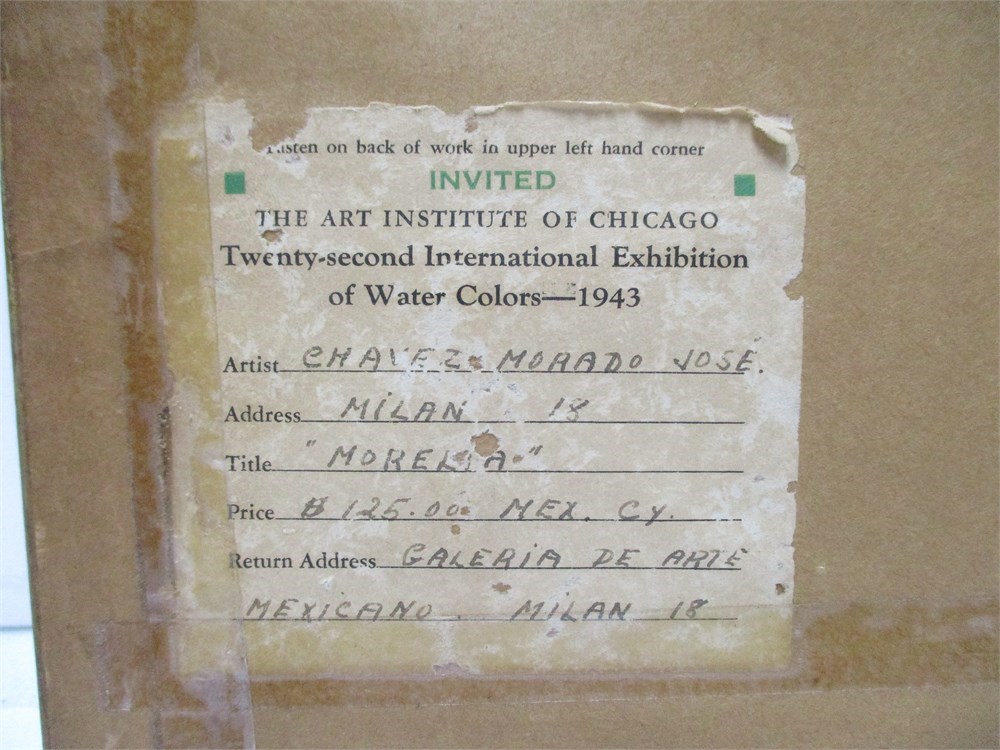 Fasten on back of work in upper left hand corner
INVITED
THE ART INSTITUTE OF CHICAGO
Twenty-second International Exhibition
of Water Colors—1943
Artist CHAVEZ MORADO JOSÉ.
Address MILAN 18
Title "MORELIA"
Price $125.00 MEX. CY.
Return Address GALERIA DE ARTE
MEXICANO. MILAN 18